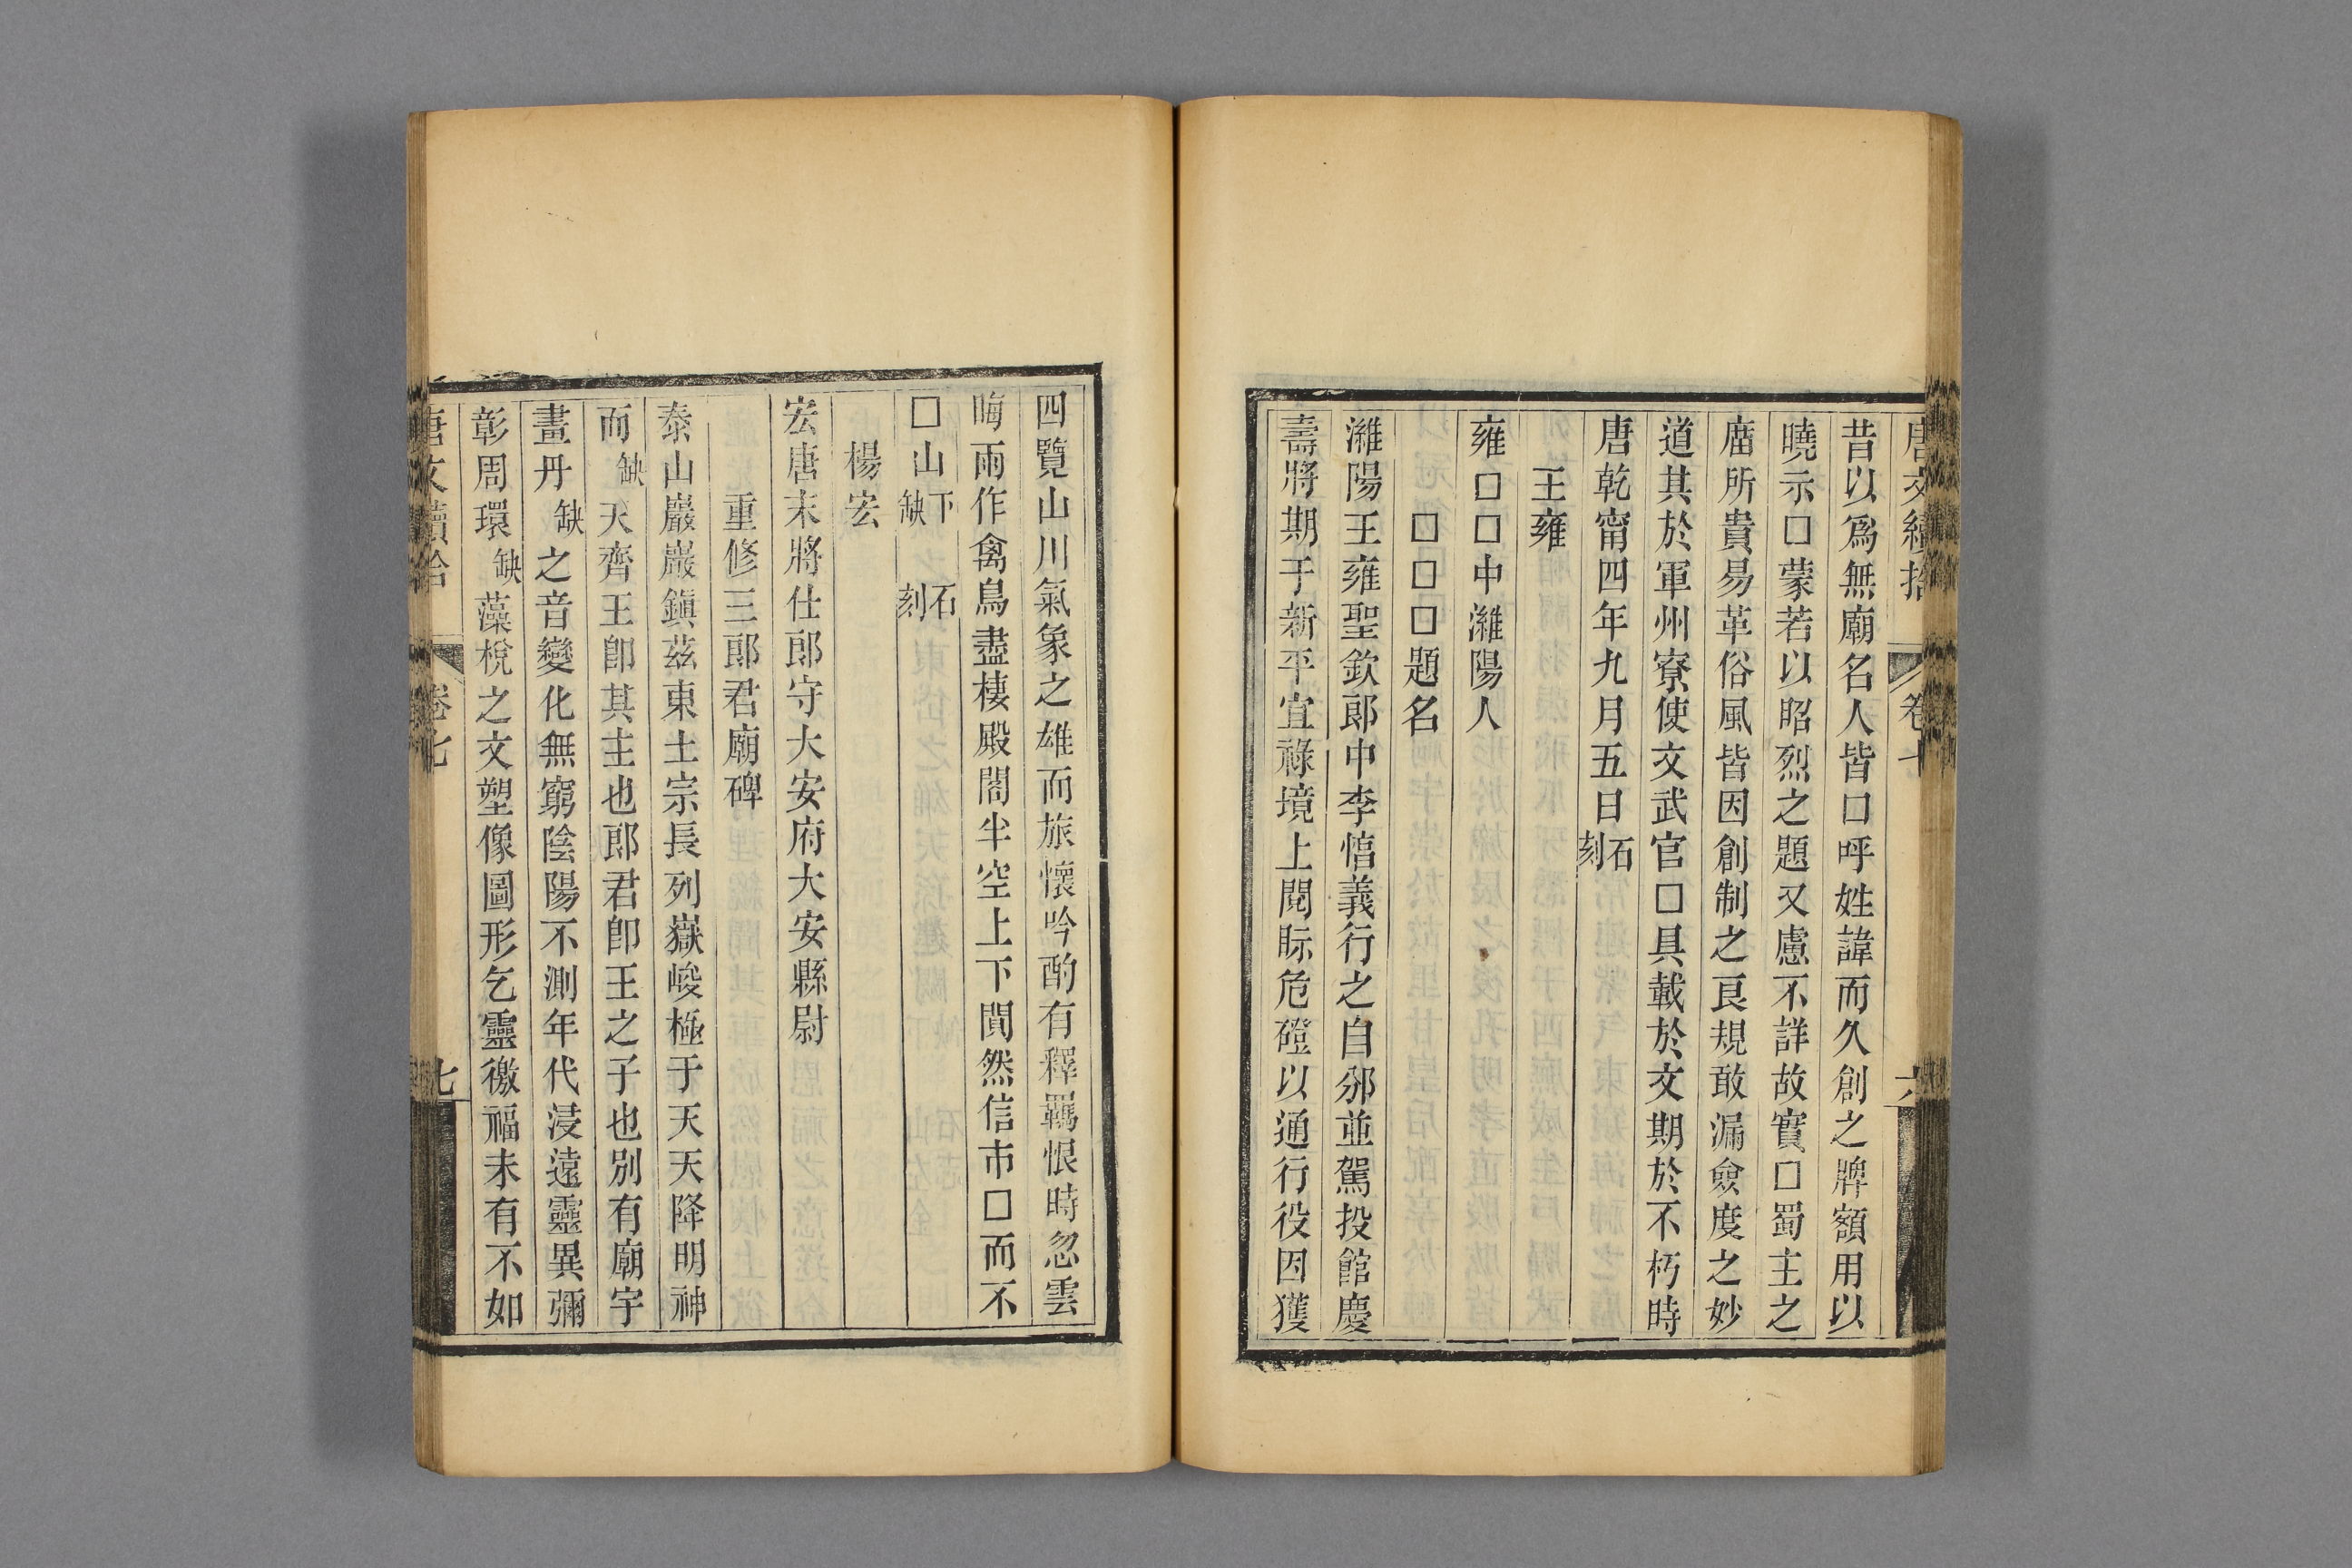 唐文續拾 卷七 六
昔以爲無廟名人皆口呼姓諱而久創之牌額用以
曉示□蒙若以昭烈之題又慮不詳故實□蜀主之
庿所貴易革俗風皆因創制之良規敢漏僉度之妙
道其於軍州寮使文武官□具載於文期於不朽時
唐乾甯四年九月五日石刻
王雍
雍□□中濰陽人
□□□題名
濰陽王雍聖欽郞中李愔義行之自邠並駕投館慶
壽將期于新平宜祿境上閱眎危磴以通行役因獲
四覽山川氣象之雄而旅懷吟酌有釋羈恨時忽雲
晦雨作禽鳥盡棲殿閣半空上下閴然信市□而不
□山下缺 石刻
楊宏
宏唐末將仕郞守大安府大安縣尉
重修三郞君廟碑
泰山巖巖鎭茲東土宗長列嶽峻極于天天降明神
而缺天齊王卽其主也郞君卽王之子也別有廟宇
畫丹缺之音變化無窮陰陽不測年代浸遠靈異彌
彰周環缺藻梲之文塑像圖形乞靈徼福未有不如
唐文續拾 卷七 七